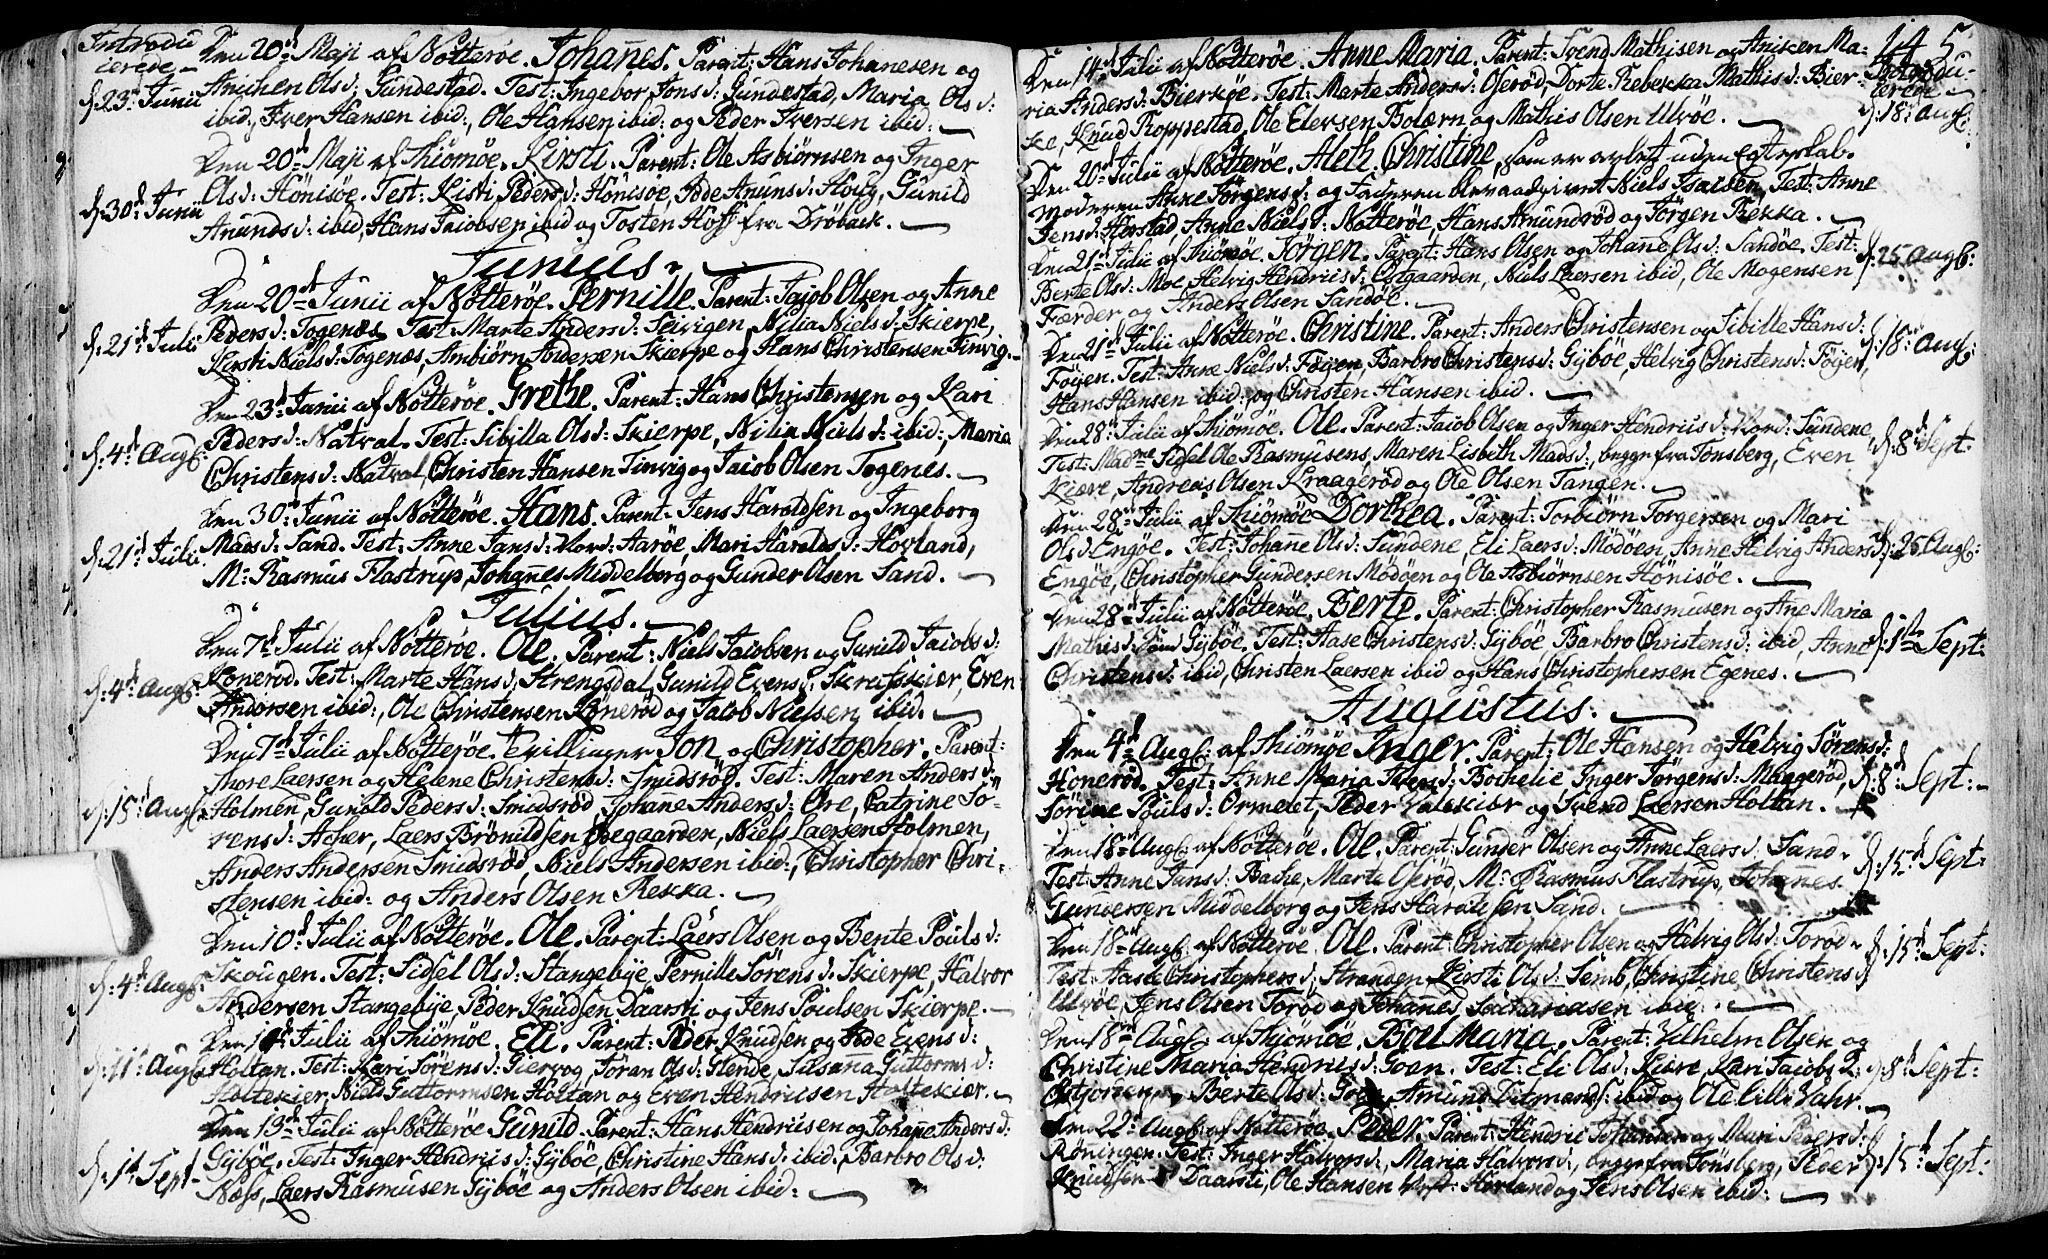 Introdu
cerede
Den 20d Maji af Nötteröe. Johañes. Parent: Hans Johanesen og
d: 23d Junii
Anichen Olsd: Gundestad. Test: Ingebor Jonsd: Gundestad, Maria Olsd:
ibid:, Iver Hansen ibid:, Ole Hansen ibid: og Peder Iversen ibid:
Den 20d Maji af Thiömöe. Kirsti. Parent: Ole Asbiörnsen og Inger
d: 30d Junii
Olsd: Hönisöe. Test: Kisti Pedersd: Hönisöe, Anunsd: Houg, Gunild
Anundsd: ibid, Hans Jacobsen ibid og Tosten Hoff fra Dröback.
Junius.
Den 20d Junii af Nötteröe. Pernille. Parent: Jacob Olsen og Anne
d: 21d Julii
Pedersd: Togenæs. Test: Marte Andersd: Leivigen, Nilia Nielsd: Skierpe,
Kirsti Nielsd: Togenæs, Ambiörn Andersen Skierpe og Hans Christensen Tinvig.
Den 23d Junii af Nötteröe. Grethe. Parent: Hans Christensen og Kari
d: 4d Augl:
Pedersd: Natval. Test: Sibilla Olsd: Skierpe, Nilia Nielsd: ibid:, Maria
Christensd: Natval, Christen Hansen Tinvig og Jacob Olsen Togenes.
Den 30d Junii af Nötteröe. Hans. Parent: Jens Haroldsen og Ingeborg
d: 21d Julii
Madsd: Sand. Test: Anne Jansd: Nord: Aaröe, Mari Haroldsd: Hovland,
Mr: Rasmus Flastrup, Johañes Middelborg og Gunder Olsen Sand.
Julius.
Den 7d Julii af Nötteröe. Ole. Parent: Niels Jacobsen og Gunild Jacobsd:
d: 4d Augl:
Honeröd. Test: Marte Hansd: Strengsdal, Gunild Evensd: Skrafskiær, Even
Andersen ibid:, Ole Christensen Honeröd og Jacob Nielsen ibid.
Den 7d Julii af Nötteröe. Tvillinger Jon og Christopher. Parent:
Thore Laersen og Helene Christensd: Smidsröd. Test: Maren Andersd:
d: 15d Augl:
Holmen, Gunild Pedersd: Smidsröd, Johañe Andersd: Öre, Catrine Sö-
rensd: Acher, Laers Brönildsen Öregaarden, Niels Laersen Holmen,
Anders Andersen Smidsröd, Niels Andersen ibid:, Christopher Chri-
stensen ibid: og Anders Olsen Rekka.
Den 10d Julii af Nötteröe. Ole. Parent: Laers Olsen og Bente Poulsd:
d: 4d Augl:
Skougen. Test: Sidsel Olsd: Stangebye, Pernille Sörensd: Skierpe, Halvor
Andersen Stangebye, Peder Knudsen Daarsti og Jens Poulsen Skierpe.
Den 11d Julii af Thiömöe. Eli. Parent: Peder Knudsen og Evensd:
d: 11d Augl:
Holtan. Test: Kari Sörensd: Giervog, Jöran Olsd: Glende, Susaña Guttormsd:
Holtekier, Niels Guttormsen Holtan og Even Hendricsen Holtekier.
Den 13d Julii af Nötteröe Gunild. Parent: Hans Hendricsen og Johañe Andersd:
d: 1d Sept:
Gyböe. Test: Inger Hendricsd: Gyböe, Christine Hansd: ibid:, Barbro Olsd:
Næss, Laers Rasmusen Gyböe og Anders Olsen ibid:
145
Den 14d Julii af Nötteröe. Anne Maria. Parent: Svend Mathisen og Anicken Ma-
Introdu-
cerede
ria Andersd: Bierköe. Test: Marte Andersd: Oeröd, Dorte Rebekka Mathisd: Bier-
d: 18d Augl:
köe, Knud Roppestad, Ole Elevsen Bolærn og Mathis Olsen Ulvöe.
Den 20d Julii af Nötteröe. Aleth Christine, som er avlet uden Egteskab.
Moderen Anne Jörgensd: og Faderen blev aadgivet Niels Isacsen. Test: Anne
Jensd: Horstad, Anne Nielsd: Nötteröe, Hans Amundröd og Jörgen Rekka.
Den 21d Julii af Thiömöe. Jörgen. Parent: Hans Olsen og Johañe Olsd: Sandöe. Test:
d: 25 Augl:
Berte Olsd: Moe, Helvig Hendricsd: Östgaarden, Niels Laersen ibid, Ole Mogensen
Færder og Anders Olsen Sandöe.
Den 21d Julii af Nötteröe. Christine. Parent: Anders Christensen og Sibille Hansd:
d: 18d Augl:
Föyen. Test: Anne Nielsd: Föyen, Barbro Christensd: Gyböe, Helvig Christensd: Föyen,
Hans Hansen ibid: og Christen Hansen ibid.
Den 28d Julii af Thiömöe. Ole. Parent: Jacob Olsen og Inger Hendricsd: Nord: Sundene
d: 8d Sept:
Test: Madme Sidsel Ole Rasmusens, Maren Lisbeth Madsd:, begge fra Tönsberg, Even
Kiære, Andreas Olsen Kraageröd og Ole Olsen Tangen.
Den 28d Julii af Thiömöe Dorthea. Parent: Torbiörn Torgersen og Mari
Olsd: Engöe. Test: Johañe Olsd: Sundene, Eli Laersd: Mödöen, Anne Helvig Andersd:
d: 25 Augl:
Engöe, Christopher Gundersen Mödöen og Ole Asbiörnsen Hönisöe.
Den 28d Julii af Nötteröe. Berte. Parent: Christopher Rasmusen og Ane Maria
Mathisd: Gyböe. Test: Aase Christensd: Gyböe Barbro Christensd: ibid, Anne
d: 1st Sept:
Christensd: ibid, Christen Laersen ibid og Hans Christophersen Egenes.
Augustus.
Den 4d Augl: af Thiömöe Inger. Parent: Ole Hansen og Helvig Sörensd:
Honeröd. Test: Anne Maria Bothelie, Inger Jörgensd: Maggeröd,
d: 8d Sept:
Sorine Poulsd: Ormelet, Peder Valekier og Svend Laersen Holtan.
Den 18d Augl: af Nötteröe. Ole. Parent: Gunder Olsen og Anne Laersd: Sand
d: 15d Sept:
Test: Anne Jansd: Bache, Marte Oeröd, Mr: Rasmus Flastrup, Johañes
Gundersen Middelborg og Jens Haroldsen Sand.
Den 18d Augl: af Nötteröe. Ole. Parent: Christopher Olsen og Helvig Olsd: Toröd
d: 15d Sept:
Test: Aase Christophersd: Stranden Kiesti Olsd: Semb, Christine Christensd:
Ulvöe, Jens Olsen Toröd og Johañes Sachariasen ibid:
Den 18d Augl: af Thiömöe. Boel Maria. Parent: Vilhelm Olsen og
Christine Maria Hendricsd: Goen. Test: Eli Olsd: Kiære, Kari Jacobsd:
d: 8d Sept:
Berte Olsd: Amund Ditmands: ibid og Ole Lille Vahr.
Den 22d Augl: af Nötteröe. Peder. Parent: Hendric Johansen og Mari Pedersd:
Röningen. Test: Inger Halvorsd:, Maria Halvorsd:, begge fra Tönsberg, Peder
d: 15d Sept:
Knudsen Daarsti, Ole Hansen Vest: Hovland og Jens Olsen ibid: